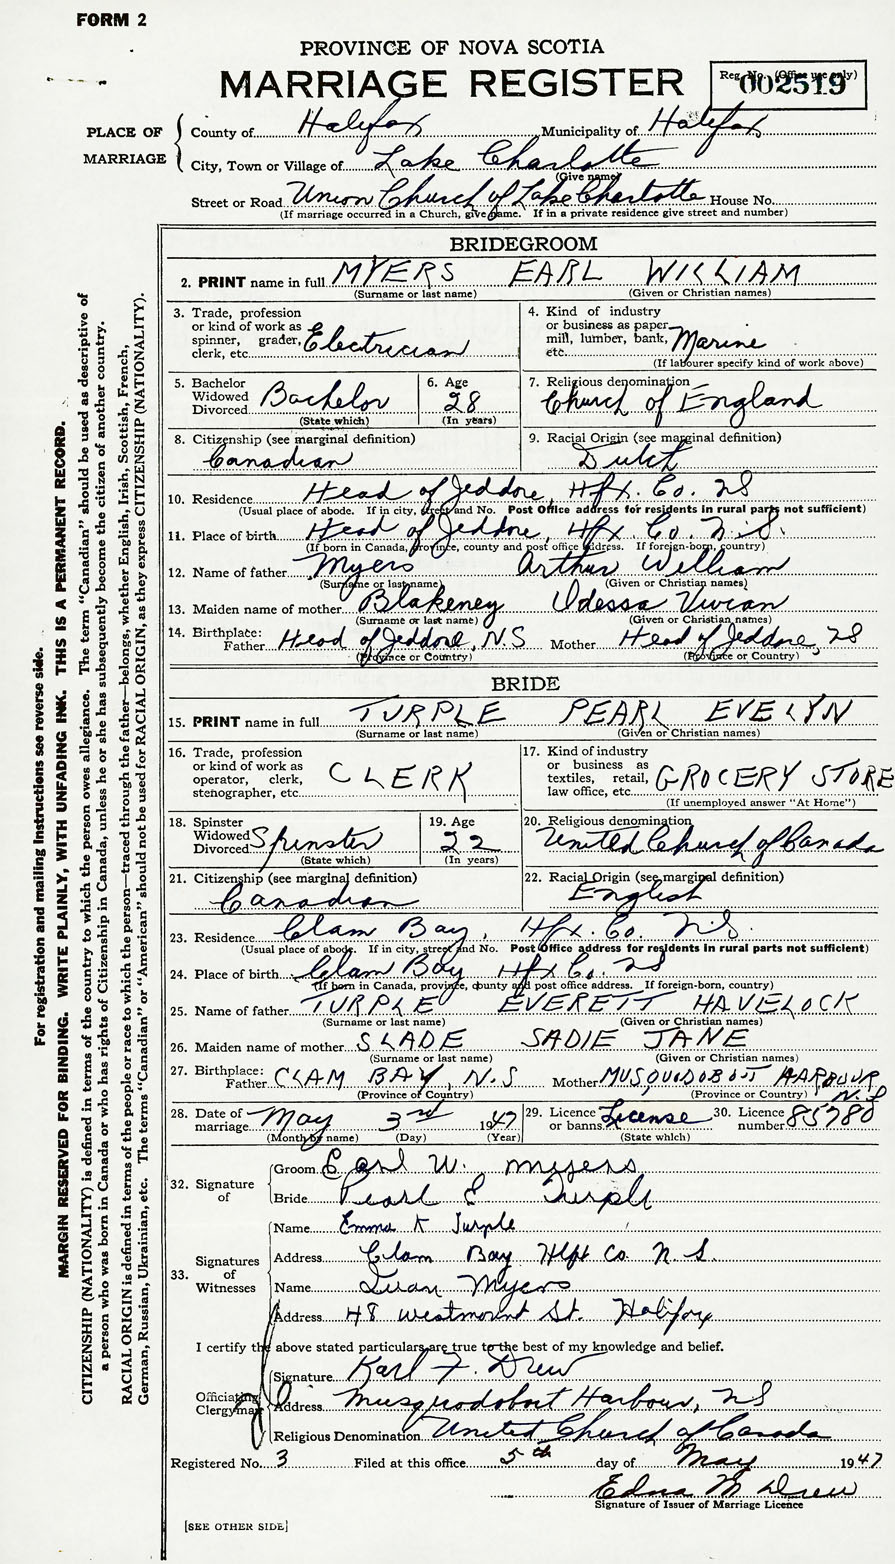 FORM 2
PROVINCE OF NOVA SCOTIA
MARRIAGE REGISTER
Reg. No. (Office use only)
002519
PLACE OF MARRIAGE
County of Halifax Municipality of Halifax
City, Town or Village of Lake Charlotte
(Give name)
Street or Road Union Church of Lake Charlotte House No.
(If marriage occurred in a Church, give name. If in a private residence give street and number)
BRIDEGROOM
2. PRINT name in full MYERS EARL WILLIAM
(Surname or last name) (Given or Christian names)
3. Trade, profession or kind of work as spinner, grader, clerk, etc. Electrician
4. Kind of industry or business as paper mill, lumber, bank, etc. Marine
(If labourer specify kind of work above)
5. Bachelor Widowed Divorced Bachelor
(State which)
6. Age 28
(In years)
7. Religious denomination
Church of England
8. Citizenship (see marginal definition)
Canadian
9. Racial Origin (see marginal definition)
Dutch
10. Residence Head of Jeddore, Hfx. Co. NS
(Usual place of abode. If in city, street and No. Post Office address for residents in rural parts not sufficient)
11. Place of birth Head of Jeddore, Hfx. Co. N.S.
(If born in Canada, province, county and post office address. If foreign-born, country)
12. Name of father Myers Arthur William
(Surname or last name) (Given or Christian names)
13. Maiden name of mother Blakeney Odessa Vivian
(Surname or last name) (Given or Christian names)
14. Birthplace: Father Head of Jeddore, N.S Mother Head of Jeddore, NS
(Province or Country) (Province or Country)
BRIDE
15. PRINT name in full TURPLE PEARL EVELYN
(Surname or last name) (Given or Christian names)
16. Trade, profession or kind of work as operator, clerk, stenographer, etc. CLERK
17. Kind of industry or business as textiles, retail, law office, etc. GROCERY STORE
(If unemployed answer "At Home")
18. Spinster Widowed Divorced Spinster
(State which)
19. Age 22
(In years)
20. Religious denomination
United Church of Canada
21. Citizenship (see marginal definition)
Canadian
22. Racial Origin (see marginal definition)
English
23. Residence Clam Bay, Hfx. Co. NS.
(Usual place of abode. If in city, street and No. Post Office address for residents in rural parts not sufficient)
24. Place of birth Clam Bay Hfx Co. NS
(If born in Canada, province, county and post office address. If foreign-born, country)
25. Name of father TURPLE EVERETT HAVELOCK
(Surname or last name) (Given or Christian names)
26. Maiden name of mother SLADE SADIE JANE
(Surname or last name) (Given or Christian names)
27. Birthplace: Father CLAM BAY, N.S Mother MUSQUODOBOIT HARBOUR, N.S
(Province or Country) (Province or Country)
28. Date of marriage May 3rd 1947
(Month by name) (Day) (Year)
29. Licence or banns License
(State which)
30. Licence number 85780
32. Signature of
Groom Earl W. Myers
Bride Pearl E Turple
33. Signatures of Witnesses
Name Emma K Turple
Address Clam Bay Hlfx Co N.S.
Name Myers
Address 48 Westmount St. Halifax
I certify the above stated particulars are true to the best of my knowledge and belief.
Officiating Clergyman
Signature Karl F. Drew
Address Musquodoboit Harbour, NS
Religious Denomination United Church of Canada
Registered No. 3 Filed at this office 5th day of May 1947
Edna M Drew
Signature of Issuer of Marriage Licence
[SEE OTHER SIDE]
For registration and mailing instructions see reverse side.
MARGIN RESERVED FOR BINDING. WRITE PLAINLY, WITH UNFADING INK. THIS IS A PERMANENT RECORD.
CITIZENSHIP (NATIONALITY) is defined in terms of the country to which the person owes allegiance. The term "Canadian" should be used as descriptive of
a person who was born in Canada or who has rights of Citizenship in Canada, unless he or she has subsequently become the citizen of another country.
RACIAL ORIGIN is defined in terms of the people or race to which the person—traced through the father—belongs, whether English, Irish, Scottish, French,
German, Russian, Ukrainian, etc. The terms "Canadian" or "American" should not be used for RACIAL ORIGIN, as they express CITIZENSHIP (NATIONALITY).